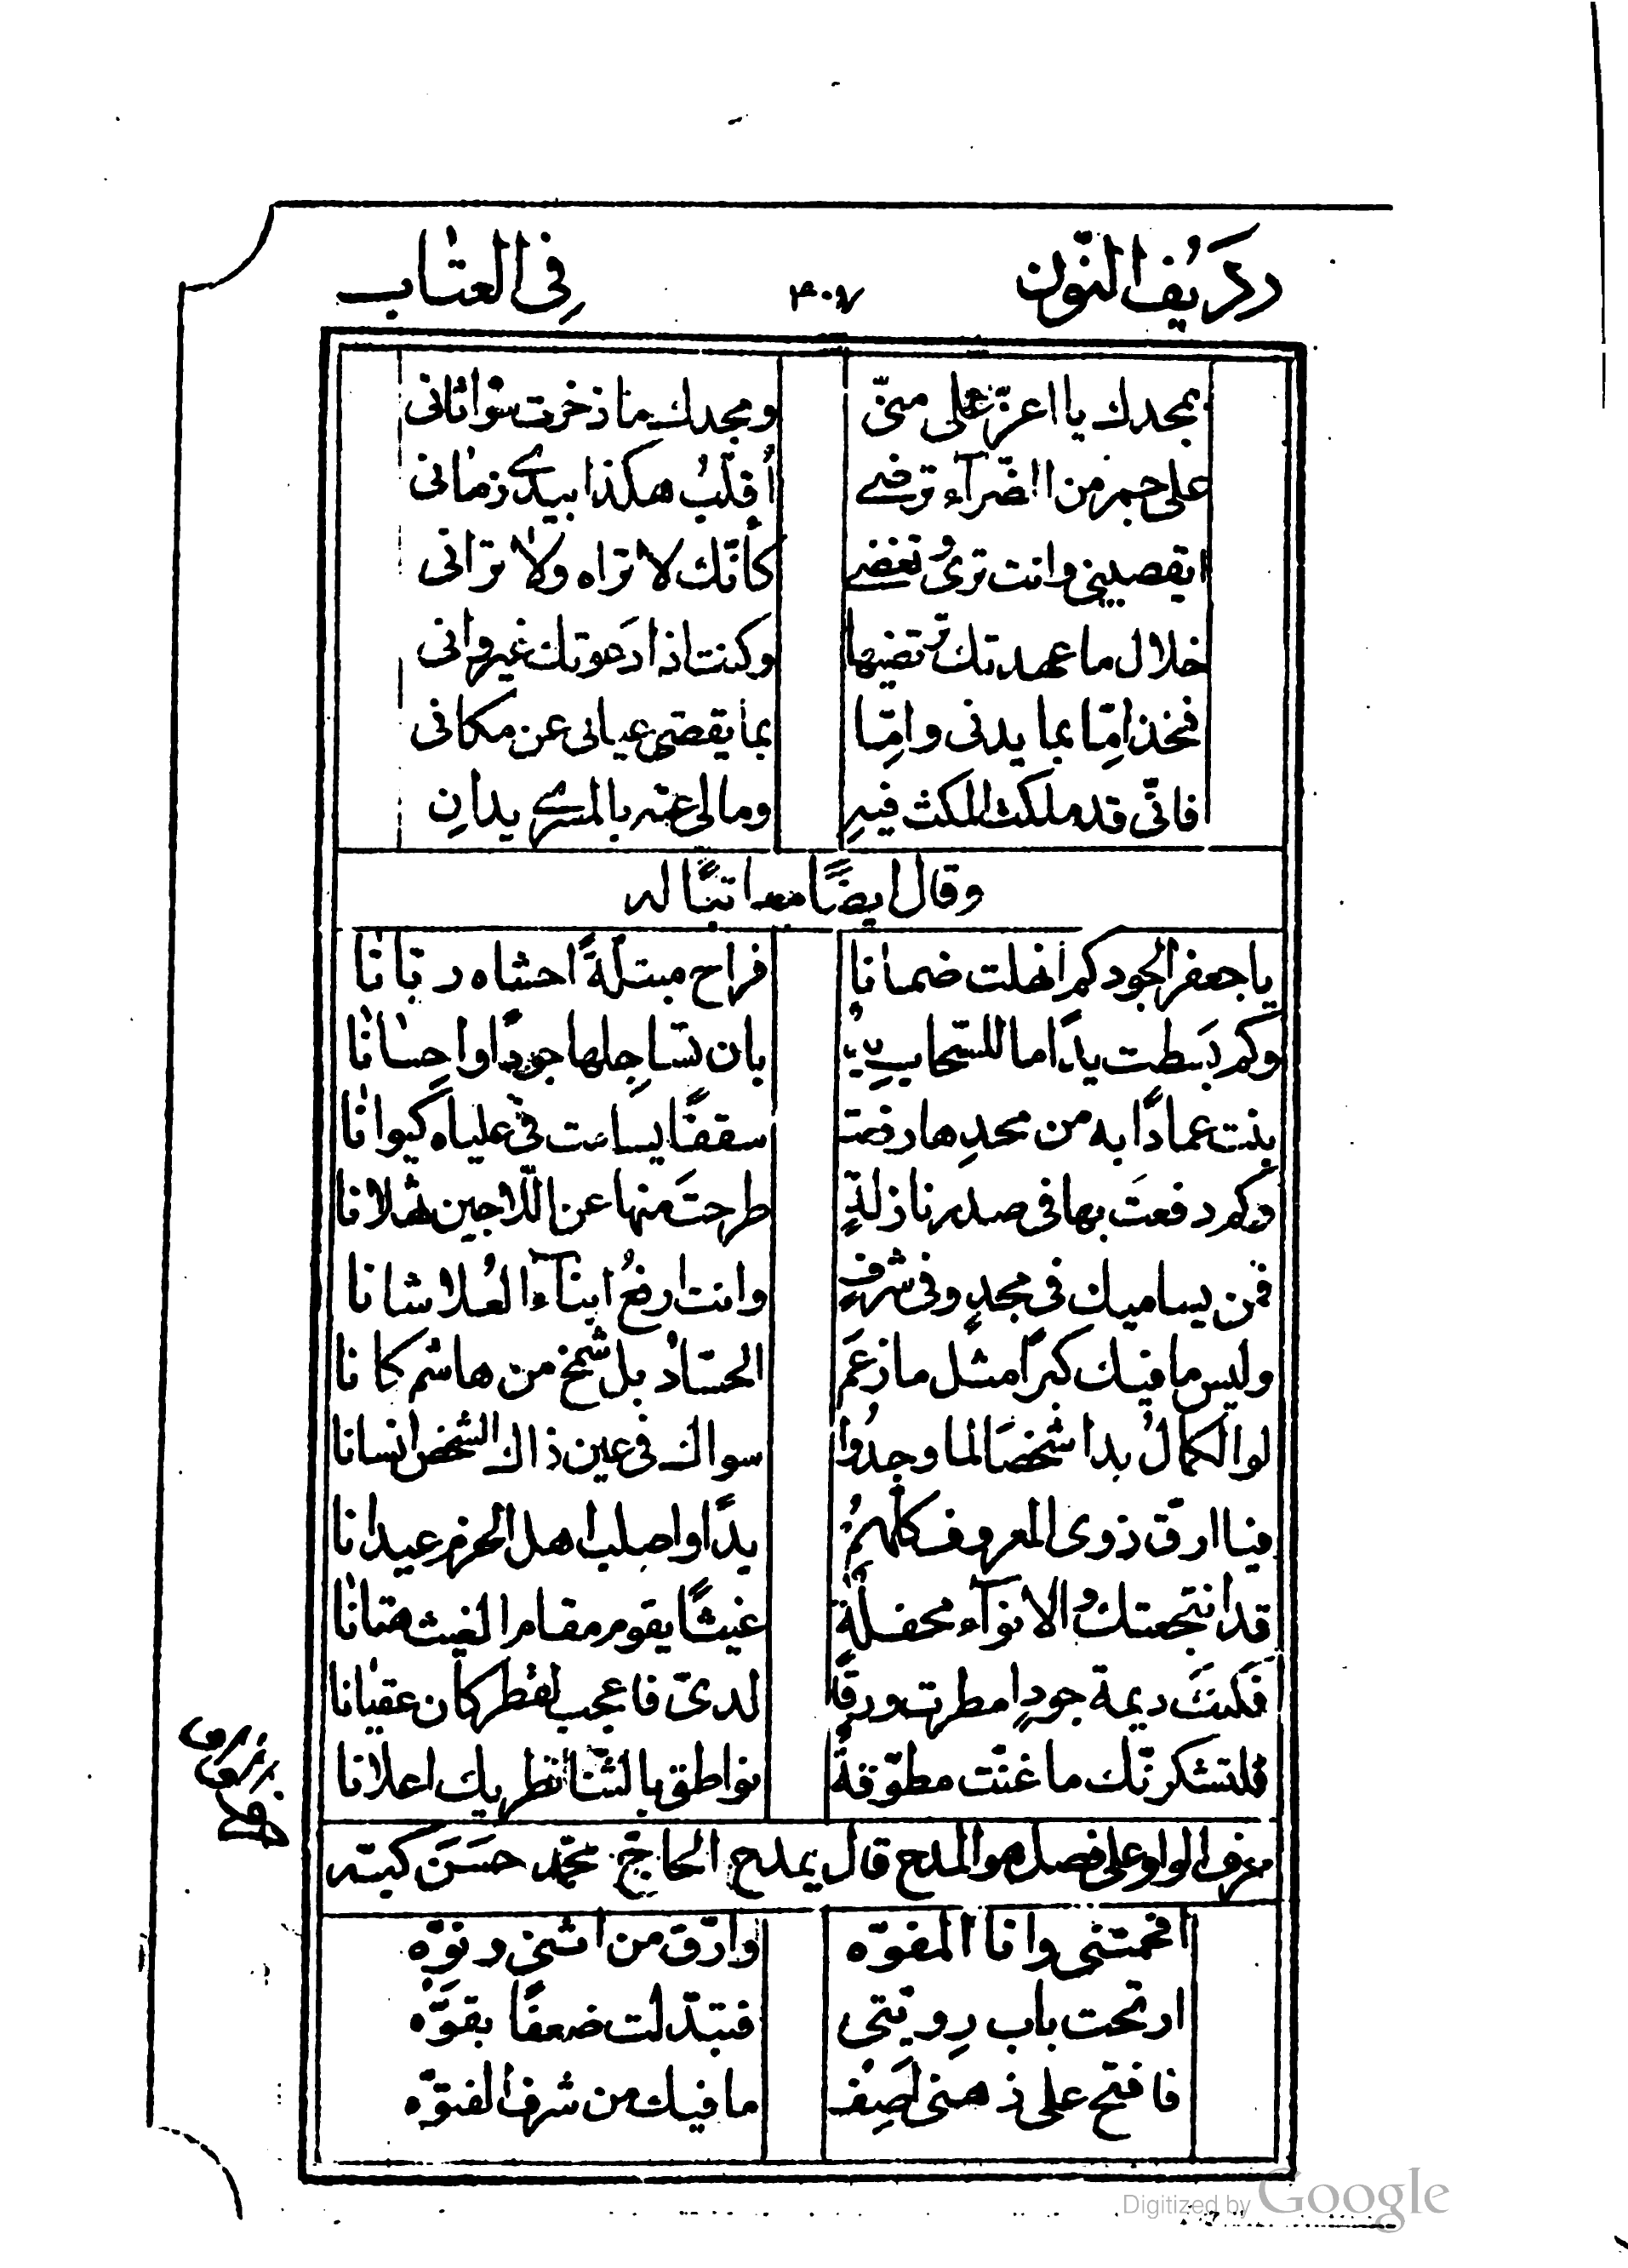 رديف النّون ٣٠٧ في العتاب
بمجدك يا اعزّ علىّ منّى ومجدك ما ذخرت سواثانى
على جمر من الضّرآء ترضى اُقلّبُ هكذا بيدى زمانى
اتقصينى وانت ترى وتغضى كأنّك لا تراه ولا ترانى
خلال ما عهدتك ترتضيها وكنت اذا دعوتك غير وانى
فخذ امّا بما يدنى وامّا بما يقصى عيانى عن مكانى
فانّى قد مللت المكث فيه ومالى عنه بالمسرى يدانِ
وقال ايضًا معاتبًا له
يا جعفر الجود كم انهلت ضمانا فراح مبتلّةً احشاه ريّانا
وكم بَسطت يدًا ما للسّحابِ يدٌ بان تساجِلها جودًا واحسانا
بنت عمادًا به من مجدِها رفعت سقفًا يسامت في علياه كيوانا
وكم دفعتَ بها في صدر نازلةٍ طرحتَ منها عن اللّاجين ثهلانا
فمن يساميك في مجدٍ وفي شرفٍ وانت ارفعُ ابنآء العُلا شانا
وليس ما فيك كبرًا مثل ما زعَمَ الحسّاد بل شمخ من هاشم كانا
لو الكمالُ بدا شخصًا لما وجدُوا سواك في عين ذاك الشخص انسانا
فيا ارق ذوى المعروف كلّهمُ يدًا واصلب اهل الحزم عيدانا
قد انتجعتك والانوآء محفلةٌ غيثًا يقوم مقام الغيث هتانا
فكنتَ ديمة جودٍ امطرت ورقًا لدىّ فاعجب لقطر كان عقيانا
فلتشكرنّك ما غنّت مطوّقةٌ نواطق بالثّنا تطريك اعلانا
حرف الواو على فصل هو المدح قال يمدح الحاجّ محمّد حسَن كبّه
افحمتنى وانا المفوّه وارّق من انشى ونوّه
ارتحت باب رويّتى فتبدّلت ضعفًا بقوّه
فافتح على ذهنى لصِف ما فيك من شرف الفتوّه
Digitized by Google